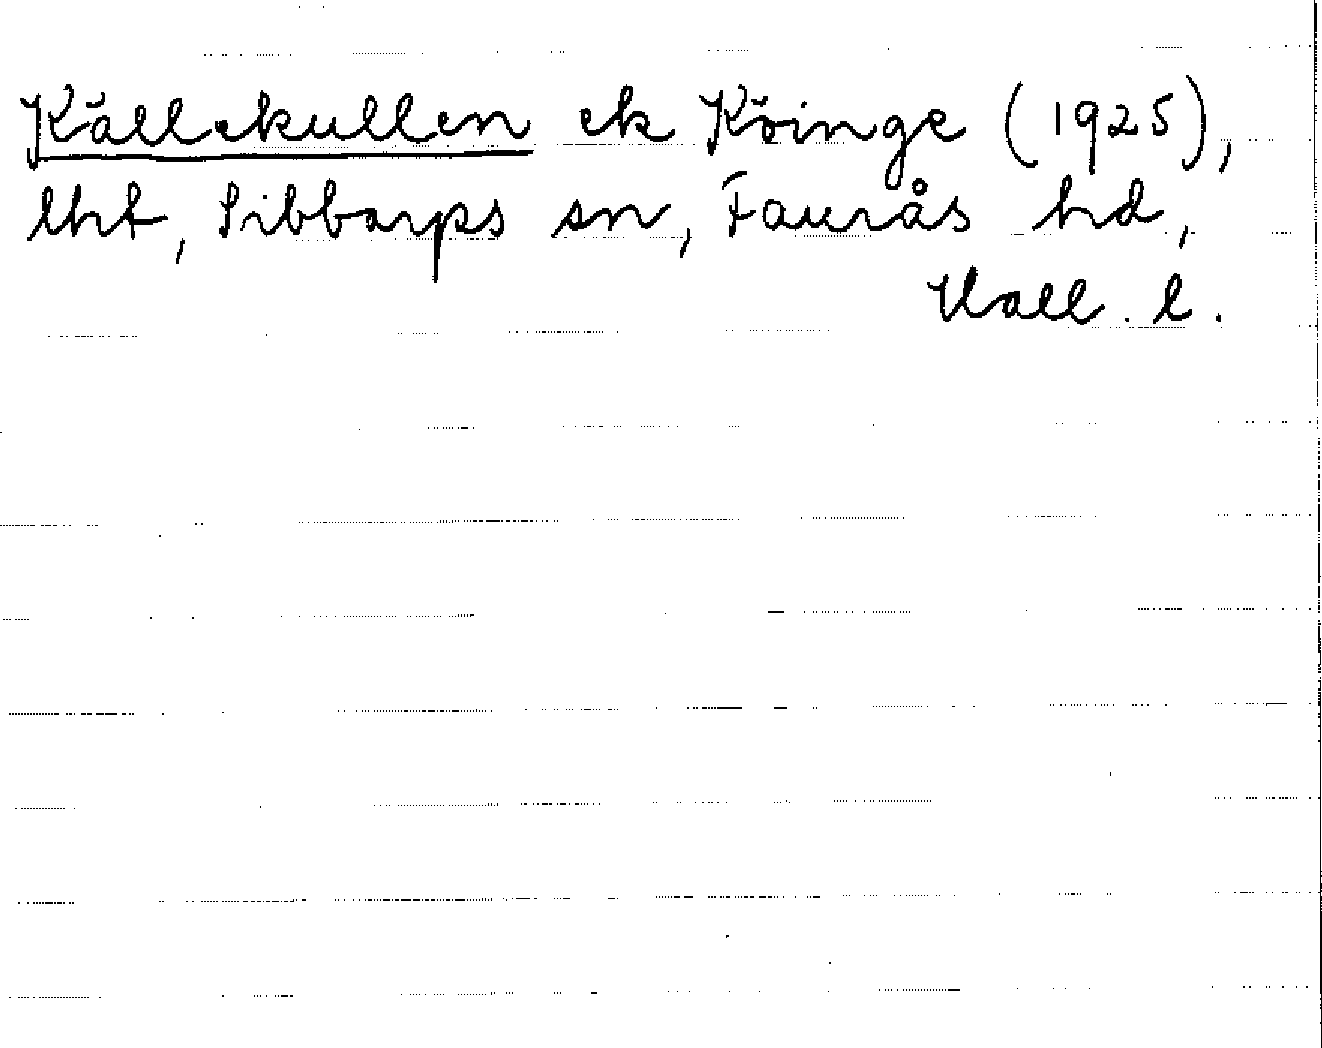 Källekullen ek Köinge (1925),
lht, Sibbarps sn, Faurås hd,
Hall. l.